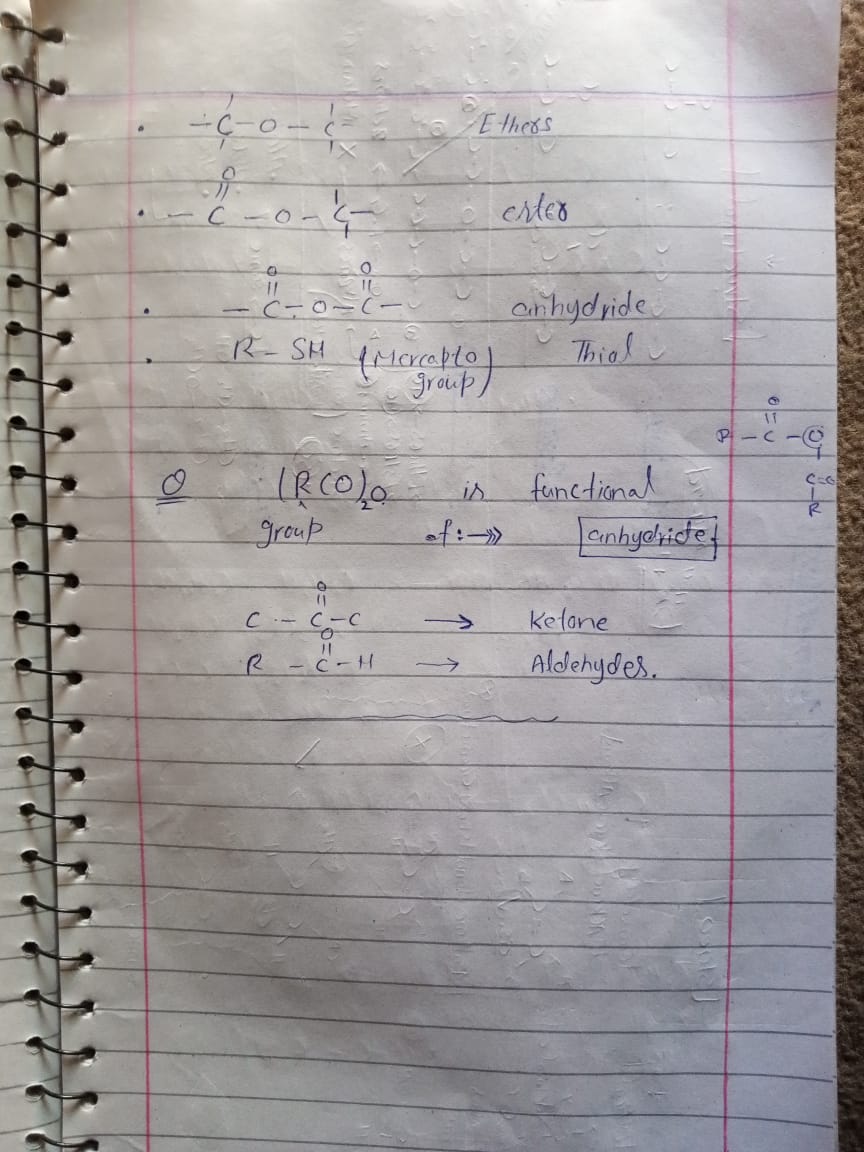 . -C-O-C- Ethers
O
. -C-O-C- ester
O O
. -C-O-C- anhydride
. R-SH (Mercapto group) Thiol
O
R-C-O
C=O
R
Q (RCO)2O is functional
group of:→» anhydride
O
C-C-C → Ketone
O
R-C-H → Aldehydes.